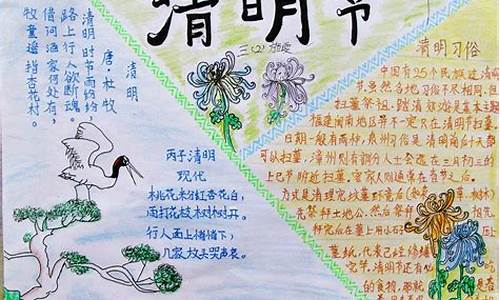 清明节
三(2)
清明
唐·杜牧
清明时节雨纷纷,
路上行人欲断魂。
借问酒家何处有,
牧童遥指杏花村。
丙子清明
现代
桃花来分红杏花白,
雨打花枝树树开。
行人面上
几家坟头哭声哀。
清明习俗
中国有25个民族过清明
节,虽然各地习俗不尽相同,但
扫墓祭祖、踏清郊游是基本主题
福建闽南地区并不一定只在清明节扫墓
日期一般有两种,泉州习俗是清明前后十天都
可以扫墓,漳州则有部分人士会选在三月初三的
上巳节附近扫墓,客家人则通常在春节之后。
方式是清理完坟墓环境后
先祭拜土地公,然后祭拜
拜完后在墓上用小石
墓纸,代表已经修缮
完毕,清明节还有
的食物,那就